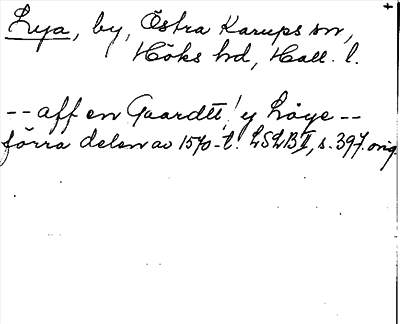 Lya, by, Östra Karups sn,
Höks hd, Hall. l.
-- aff en Gaardtt ! y Löye --
förra delen av 1570-t. LSLB II, s. 397. orig.